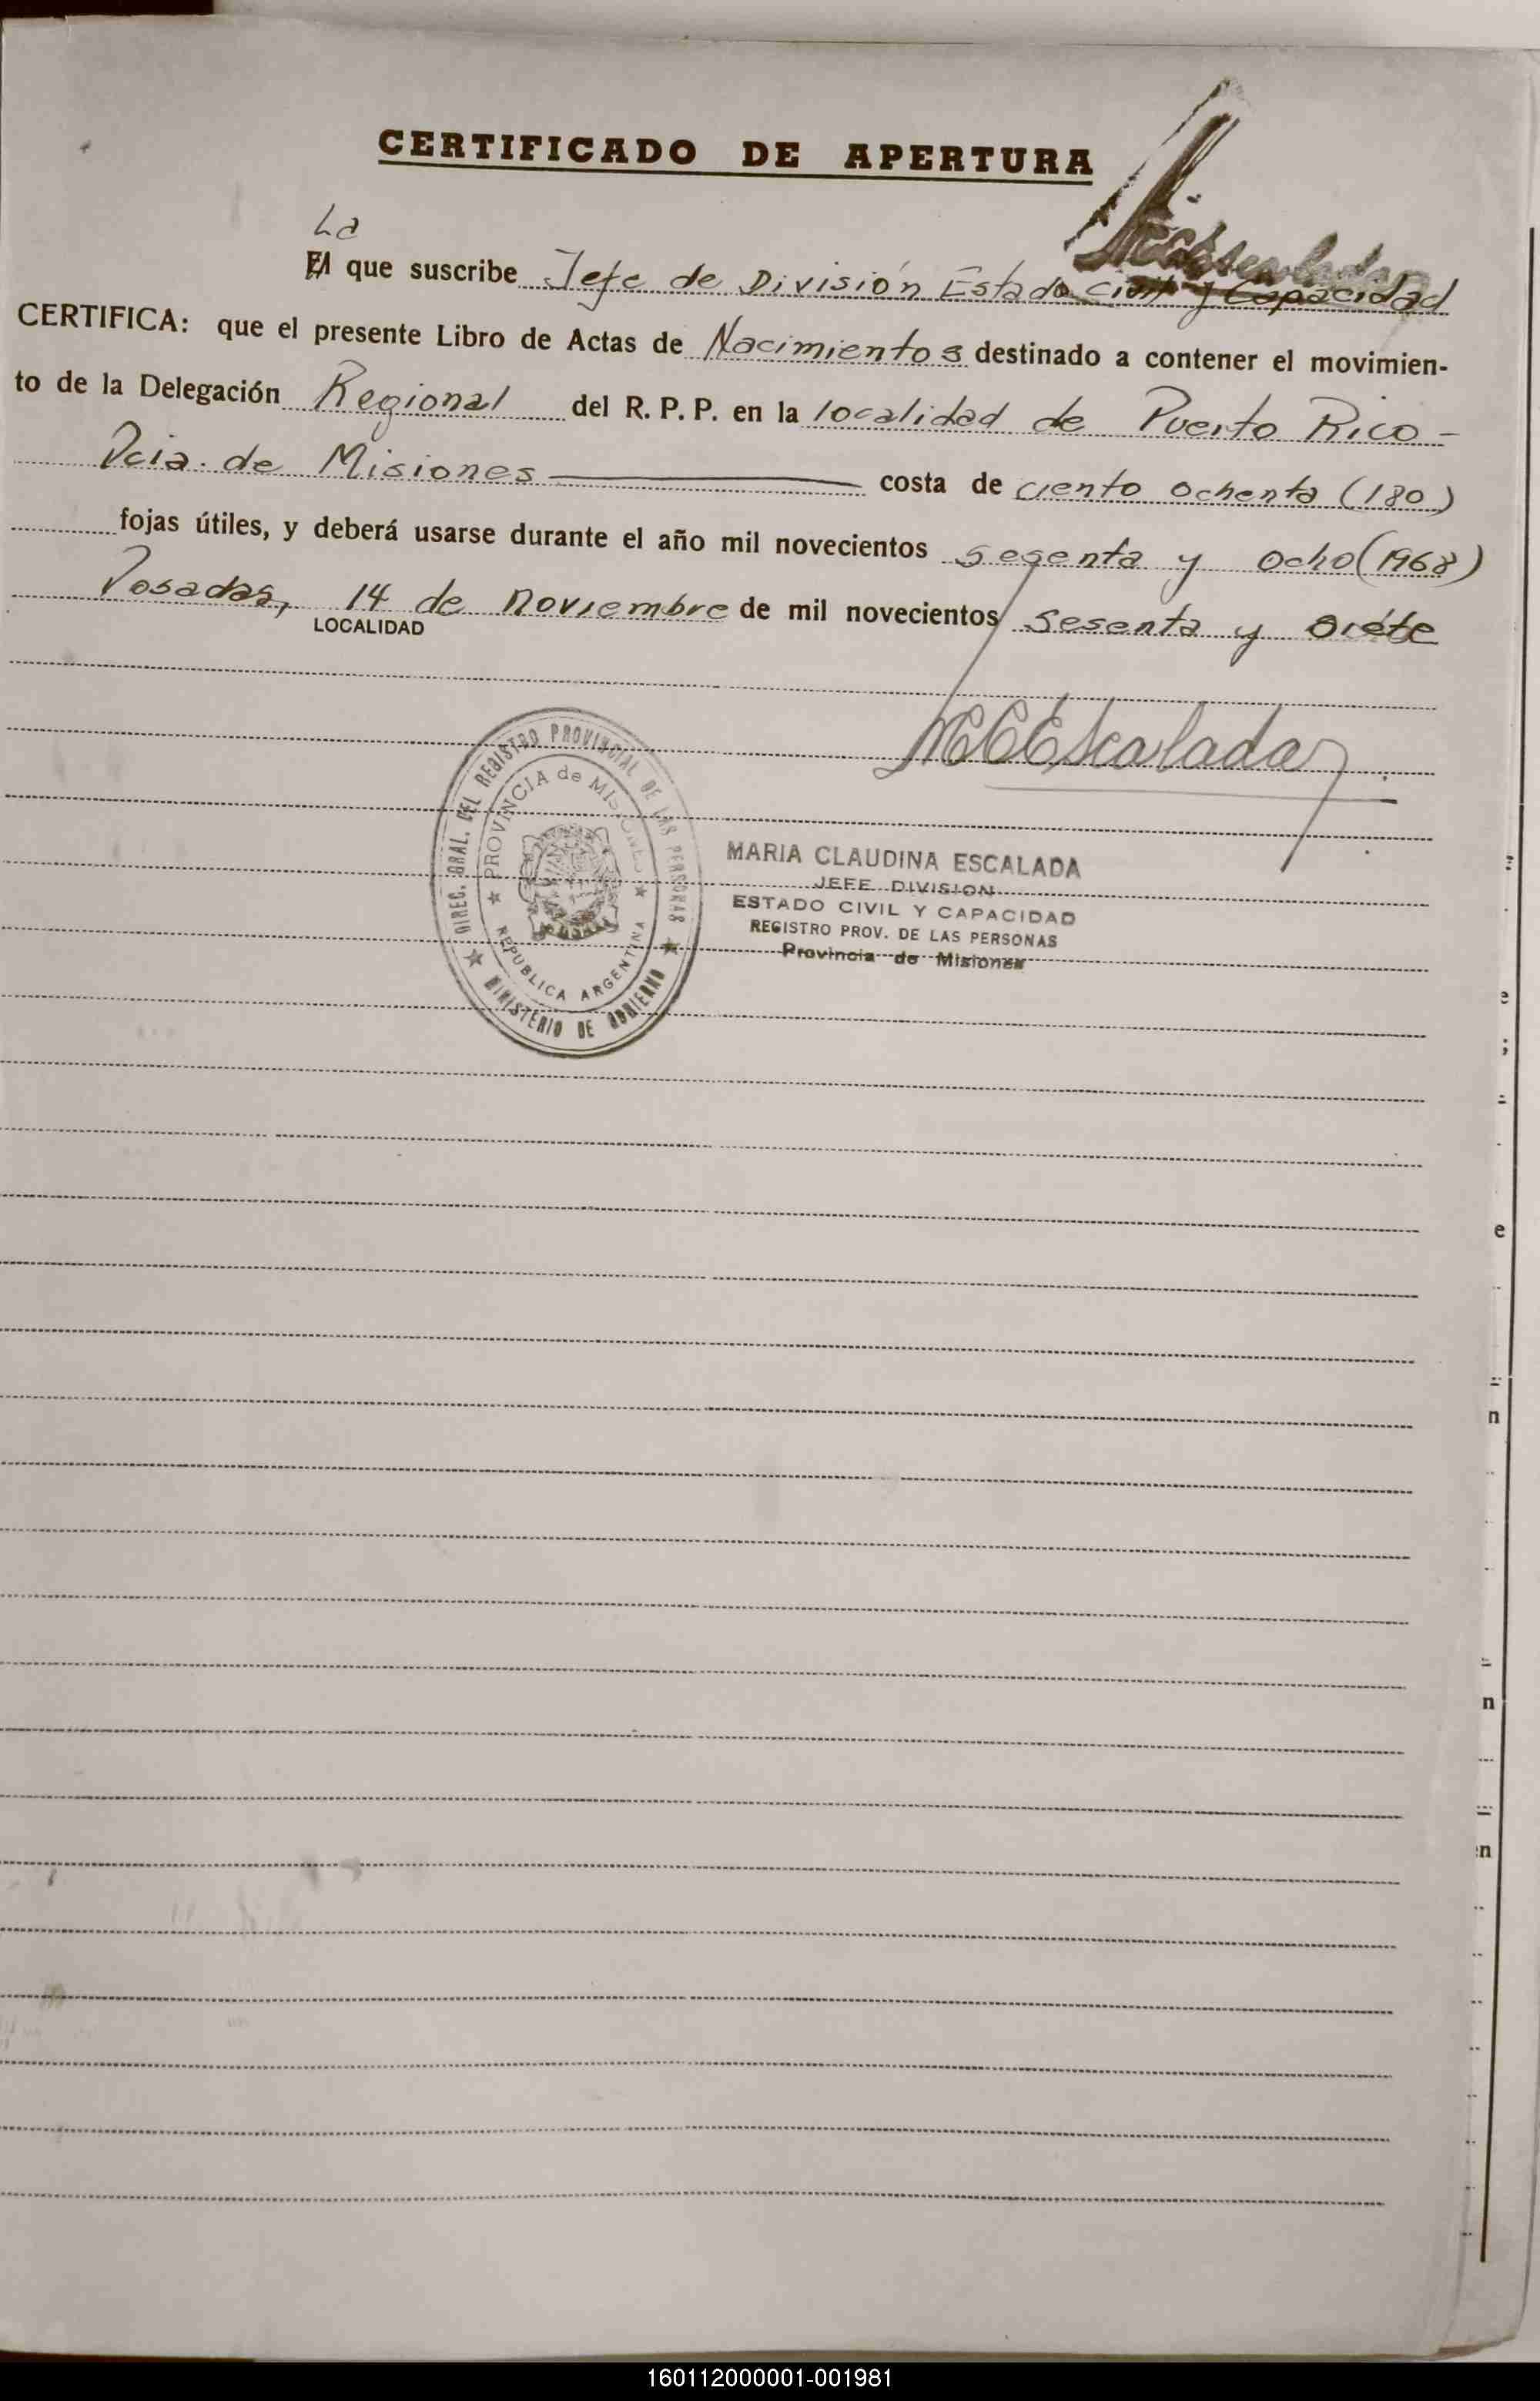 CERTIFICADO DE APERTURA
La
El que suscribe Jefe de División Estado Civil y Capacidad
CERTIFICA: que el presente Libro de Actas de Nacimientos destinado a contener el movimien-
to de la Delegación Regional del R. P. P. en la localidad de Puerto Rico -
Pcia. de Misiones costa de ciento ochenta (180)
fojas útiles, y deberá usarse durante el año mil novecientos sesenta y ocho (1968)
Posadas, 14 de noviembre de mil novecientos sesenta y siete
LOCALIDAD
MCEscalada
DIREC. GRAL. DEL REGISTRO PROVINCIAL DE LAS PERSONAS
PROVINCIA de MISIONES
REPUBLICA ARGENTINA
MINISTERIO DE GOBIERNO
MARIA CLAUDINA ESCALADA
JEFE DIVISION
ESTADO CIVIL Y CAPACIDAD
REGISTRO PROV. DE LAS PERSONAS
Provincia de Misiones
160112000001-001981